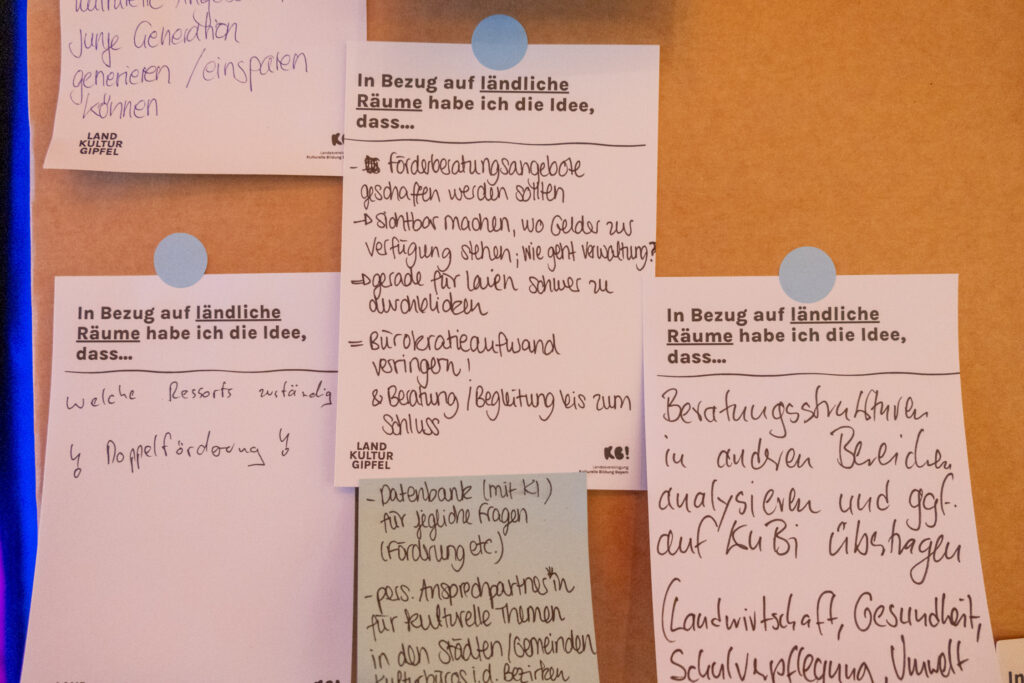 kulturelle
Junge Generation
generieren / einsparen
können
LAND
KULTUR
GIPFEL
Landesvereinigung
Kulturelle Bildung
In Bezug auf ländliche
Räume habe ich die Idee,
dass...
- Förderberatungsangebote
geschaffen werden sollten
→ Sichtbar machen, wo Gelder zur
Verfügung stehen; wie geht Verwaltung?
→ gerade für Laien schwer zu
durchblicken
= Bürokratieaufwand
verringern!
& Beratung / Begleitung bis zum
Schluss
LAND
KULTUR
GIPFEL
KB!
Landesvereinigung
Kulturelle Bildung Bayern
In Bezug auf ländliche
Räume habe ich die Idee,
dass...
welche Ressorts zuständig
Doppelförderung
- Datenbank (mit KI)
für jegliche Fragen
(Förderung etc.)
- pers. Ansprechpartner*in
für kulturelle Themen
in den Städten/Gemeinden
Kulturbüros i.d. Bezirken
In Bezug auf ländliche
Räume habe ich die Idee,
dass...
Beratungsstrukturen
in anderen Bereichen
analysieren und ggf.
auf KuBi übertragen
(Landwirtschaft, Gesundheit,
Schulverpflegung, Umwelt
In